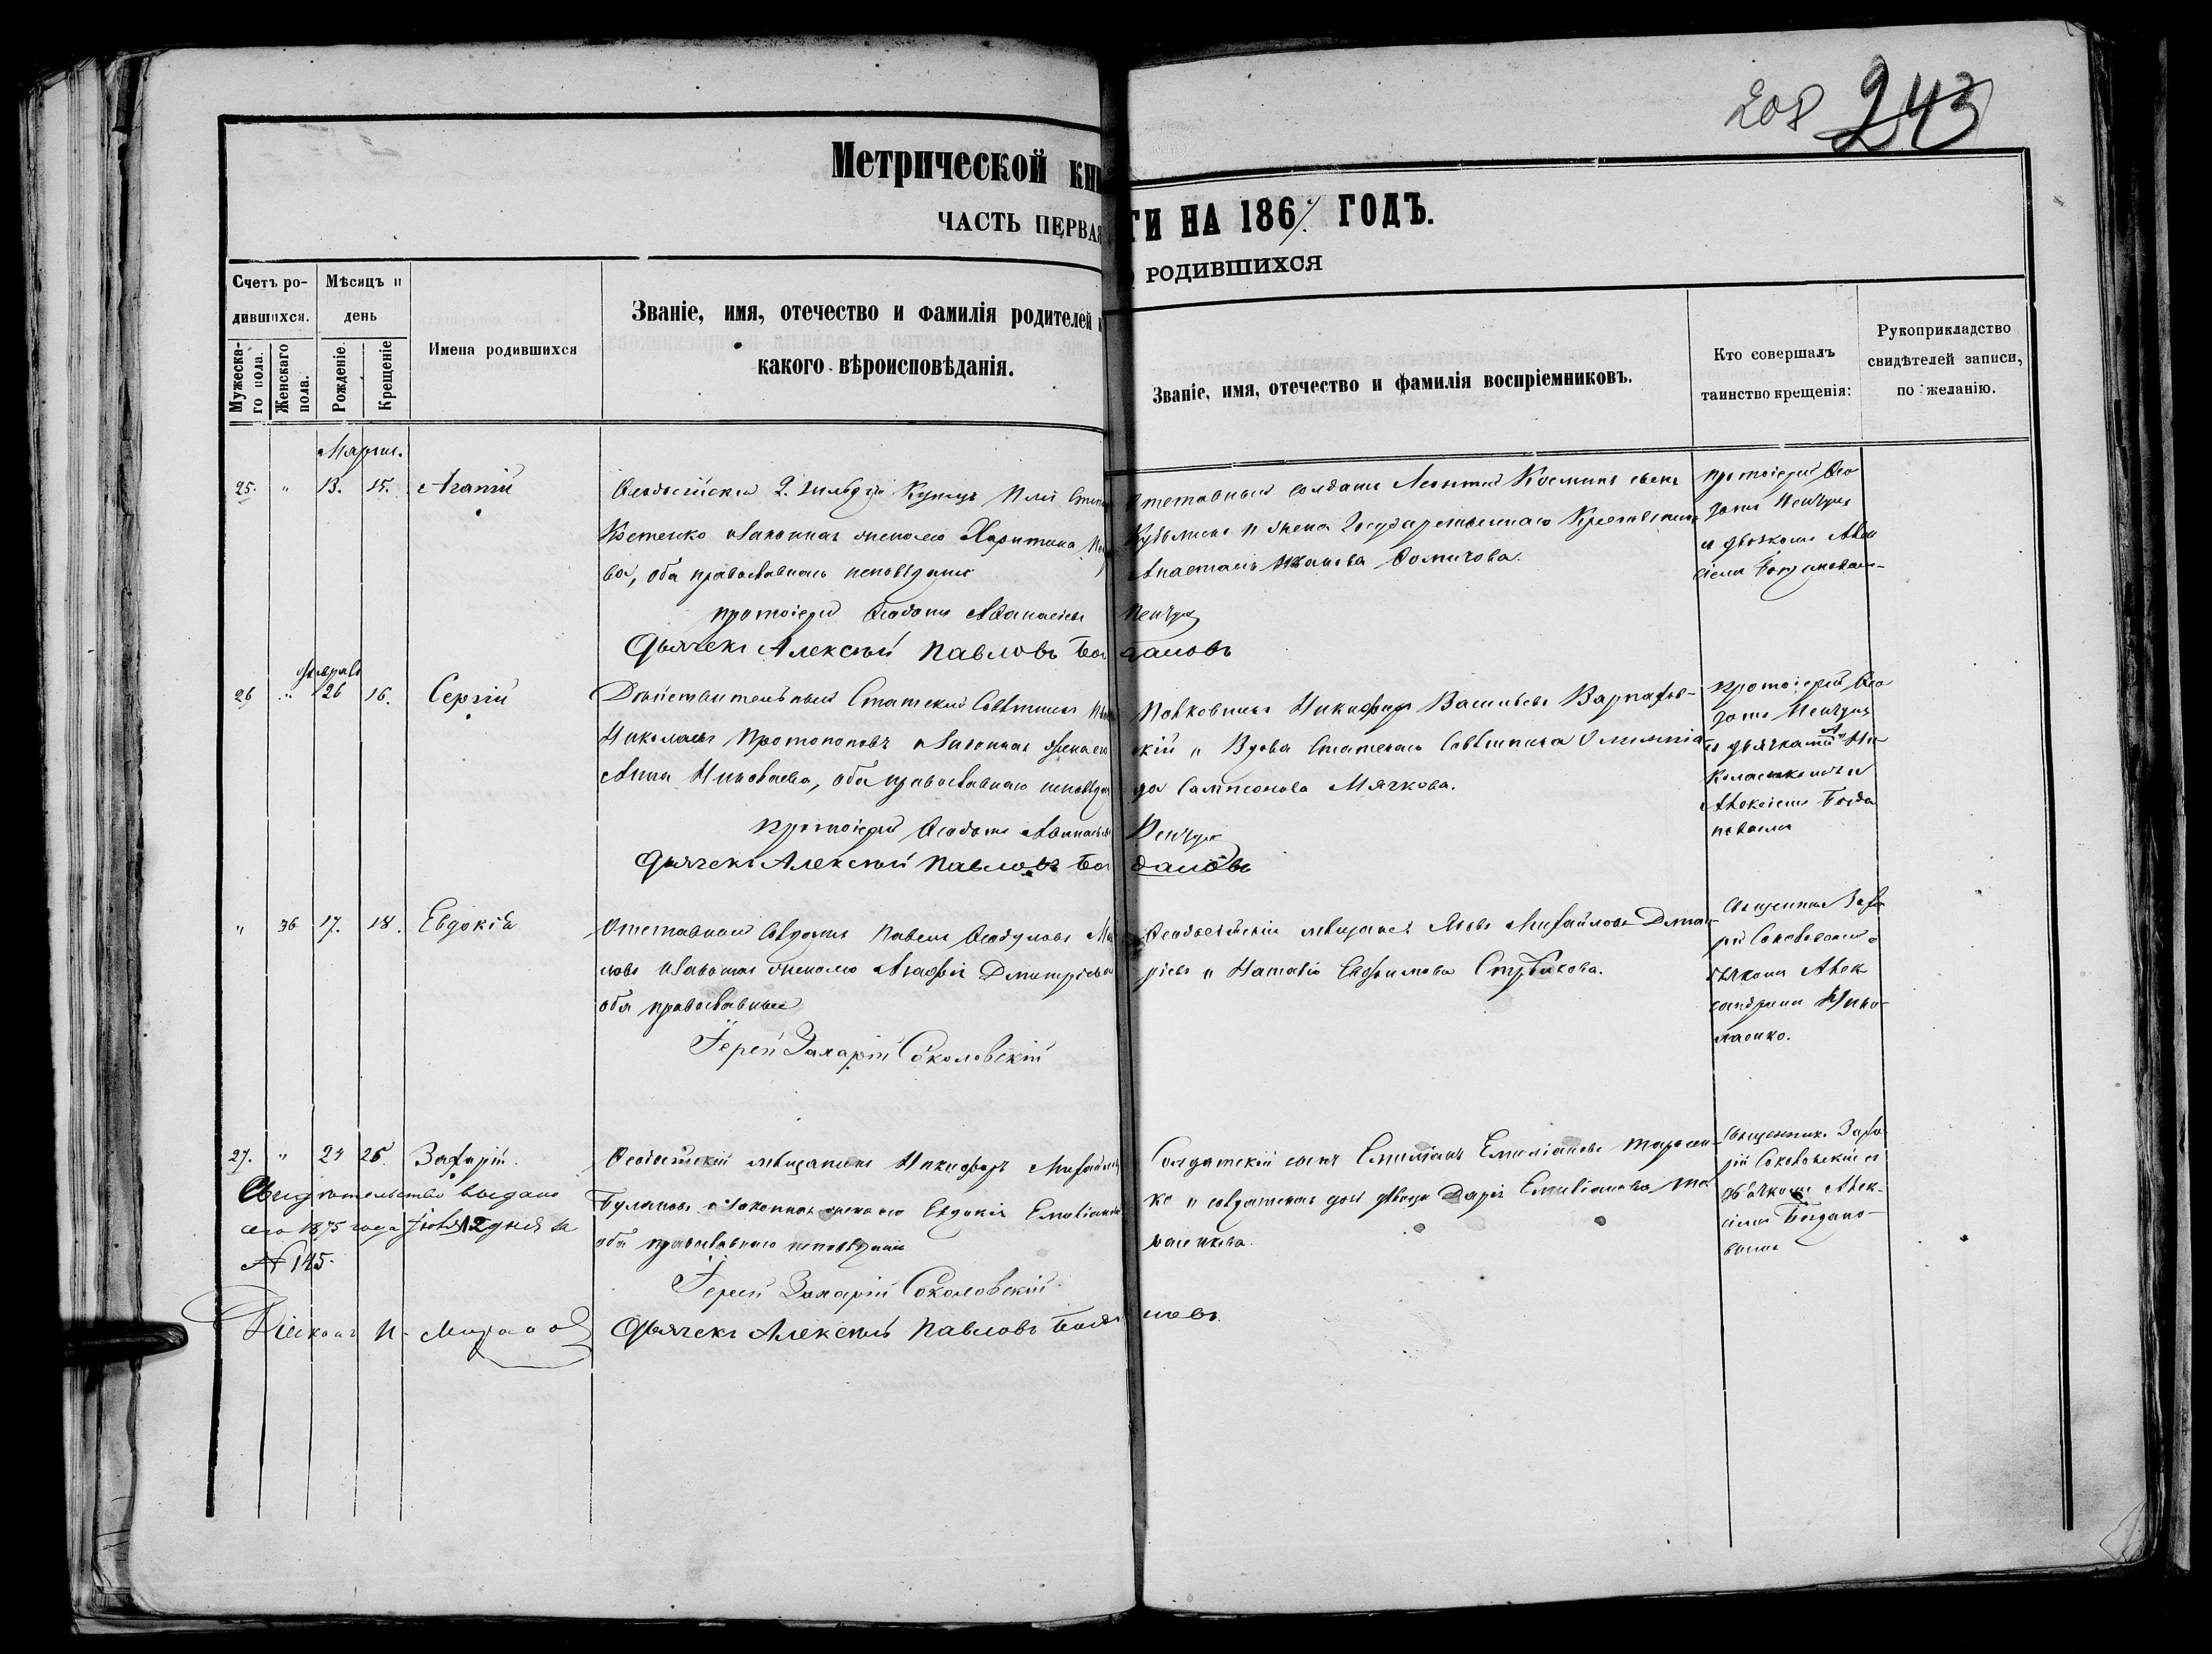 208 243
Метрической кни
ТИ НА 186 ГОДЪ.
ЧАСТЬ ПЕРВАЯ
РОДИВШИХСЯ
Счетъ ро-
дившихся.
Мужеска-
го пола.
Женскаго
пола.
Мѣсяцъ и
день
Рожденіе.
Крещеніе
Имена родившихся
Званіе, имя, отечество и фамилія родителей и
какого вѣроисповѣданія.
Званіе, имя, отечество и фамилія воспріемниковъ.
Кто совершалъ
таинство крещенія:
Рукоприкладство
свидѣтелей записи,
по желанію.
25. " 13. 15. Агапій
Ѳеодосійскій 2. гильдіи Купецъ Илія
Костенко и законная жена его Харитина
ва, оба православнаго исповѣданія
протоіерей Ѳеодотъ Аѳанасіевъ
Дьячекъ Алексѣй Павловъ Бог
Отставный солдатъ Леонтій Косминъ сынъ
и жена Государственнаго Крестьянина
Анастасія Иванова
Пенчул
дановъ
протоіерей Ѳео
дотъ Пенчулъ
и дьячкомъ Алек
сіемъ Богданова-
26 " 26 16. Сергій
Дѣйствительный Статскій Совѣтникъ
Николаевъ Протопоповъ и законная жена его
Анна Николаева, оба православнаго исповѣдан
протоіерей Ѳеодотъ Аѳанасьевъ
Дьячекъ Алексѣй Павловъ Бог
Полковникъ Никифоръ Васильевъ
скій и Вдова Статскаго Совѣтника Олимпіа-
да Сампсонова Мячкова.
Пенчул
дановъ
протоіерей Ѳео
дотъ Пенчулъ
и дьячками Ни-
Алексіемъ Богда
новымъ
" 36 17. 18. Евдокія
Отставный Солдатъ Павелъ Ѳеодуловъ
ловъ и законная жена его Агафія Дмитріева
оба православные
Іерей Захарій Соколовскій
Ѳеодосійскій мѣщанинъ Яковъ Михайловъ Дмит-
ріевъ и Наталія Евфимова
Священник Заха
рій Соколовскій
дьячкомъ Алек
сандромъ Нико-
лаенко.
27. " 24 25. Захарій.
Ѳеодосійскій мѣщанинъ Никифоръ Михайловъ
Булановъ и законная жена его Евдокія Емиліанова
оба православнаго исповѣданія
Іерей Захарій Соколовскій
Дьячекъ Алексѣй Павловъ Богда
Солдатскій сынъ Емиліанъ Емиліановъ Тарасен-
ко и солдатская дочь дѣвица Дарія Емиліанова Та
расенкова.
новъ
Священник Заха-
рій Соколовскій и
дьячкомъ Алек-
сіемъ Богдано-
вымъ
Свидѣтельство выдано
сего 1875 года Іюля 12 дня за
№ 145.
Діаконъ И.